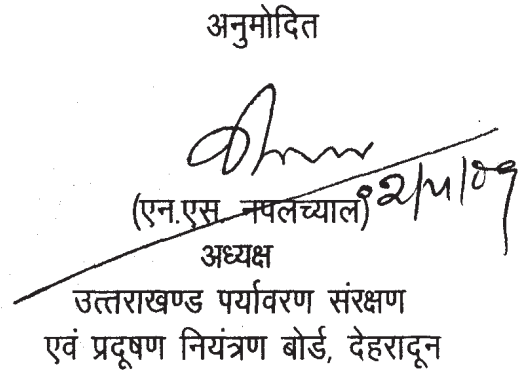 अनुमोदित
(एन.एस. नपलच्याल)
अध्यक्ष
उत्तराखण्ड पर्यावरण संरक्षण
एवं प्रदूषण नियंत्रण बोर्ड, देहरादून